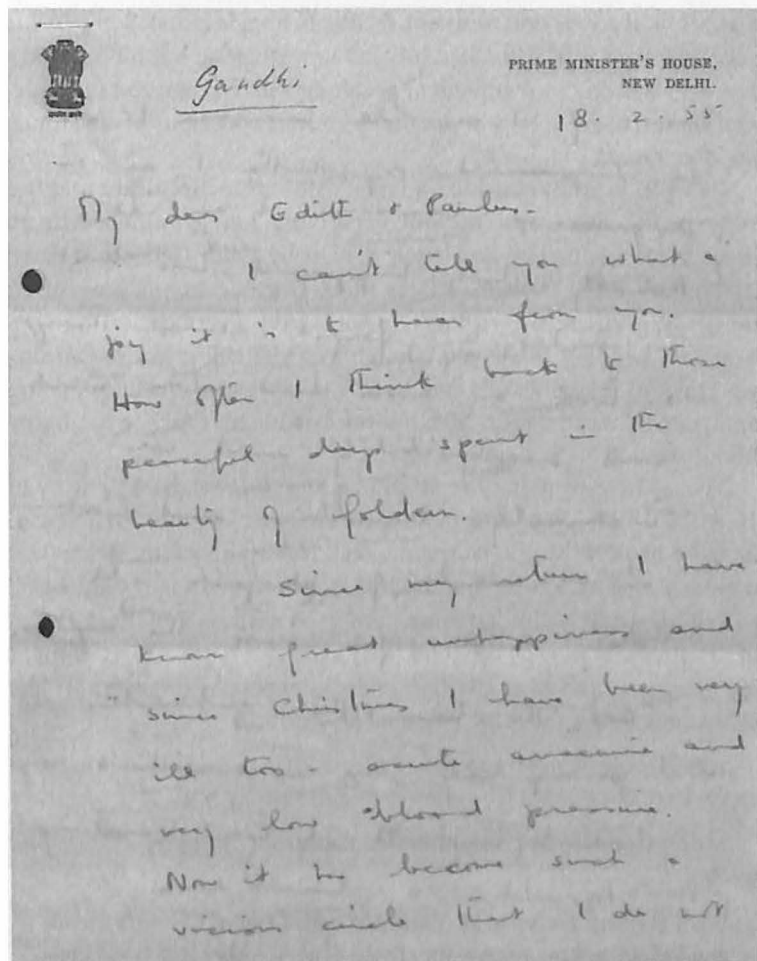 Gandhi
PRIME MINISTER'S HOUSE,
NEW DELHI.
18. 2. 55
My dear Edith & Paulus -
I can't tell you what a
joy it is to hear from you.
How often I think back to those
peaceful days spent in the
beauty of
Since my return I have
known great unhappiness and
since Christmas I have been very
ill too - acute anaemia and
very low blood pressure.
Now it has become such a
vicious circle that I do not